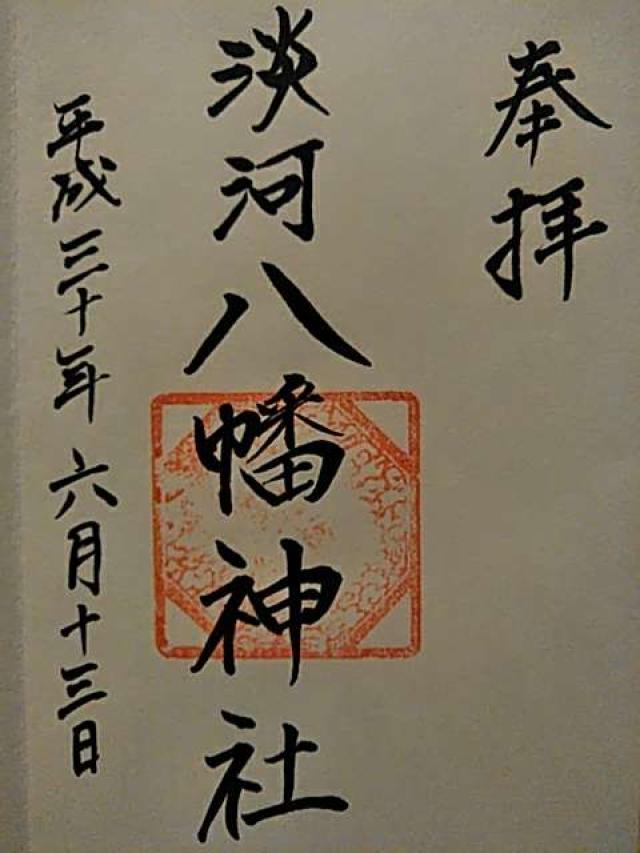 奉拝
淡河八幡神社
平成三十年六月十三日